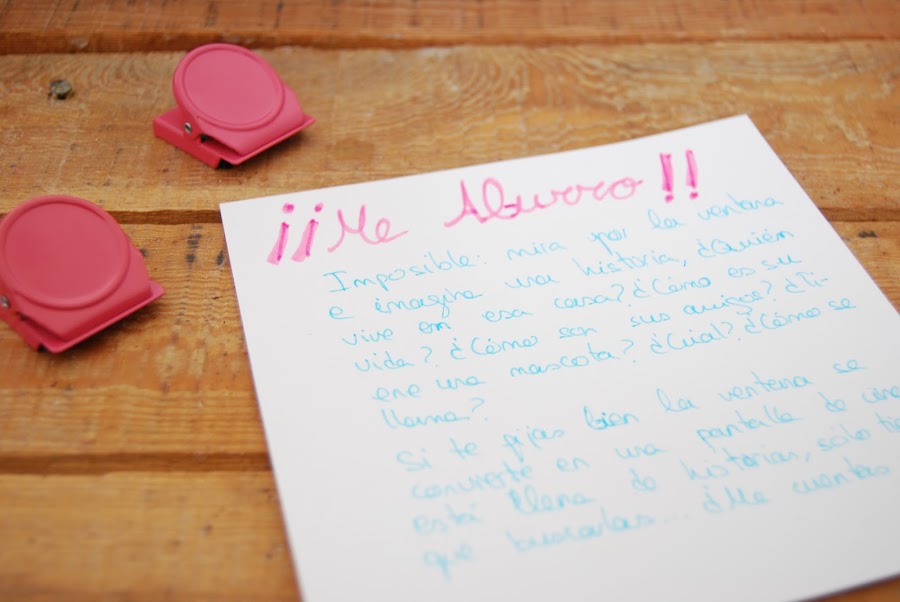 ¡¡Me Aburro!!
Imposible: mira por la ventana
e imagina una historia, ¿Quién
vive en esa casa? ¿Cómo es su
vida? ¿Cómo son sus amigos? ¿Ti-
ene una mascota? ¿Cuál? ¿Cómo se
llama?
Si te fijas bien la ventana se
convierte en una pantalla de cine
está llena de historias, sólo
que buscarlas... ¿Me cuentas